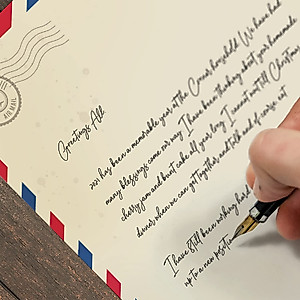 AIR MAIL
Greetings All
2021 has been a memorable year at the household. We have had
many blessings come our way. I have been thinking about your homemade
cherry jam and bunt cake all year long. I cannot wait till Christmas
dinner when we can get together and talk and of course eat
I have still been working hard
up to a new position